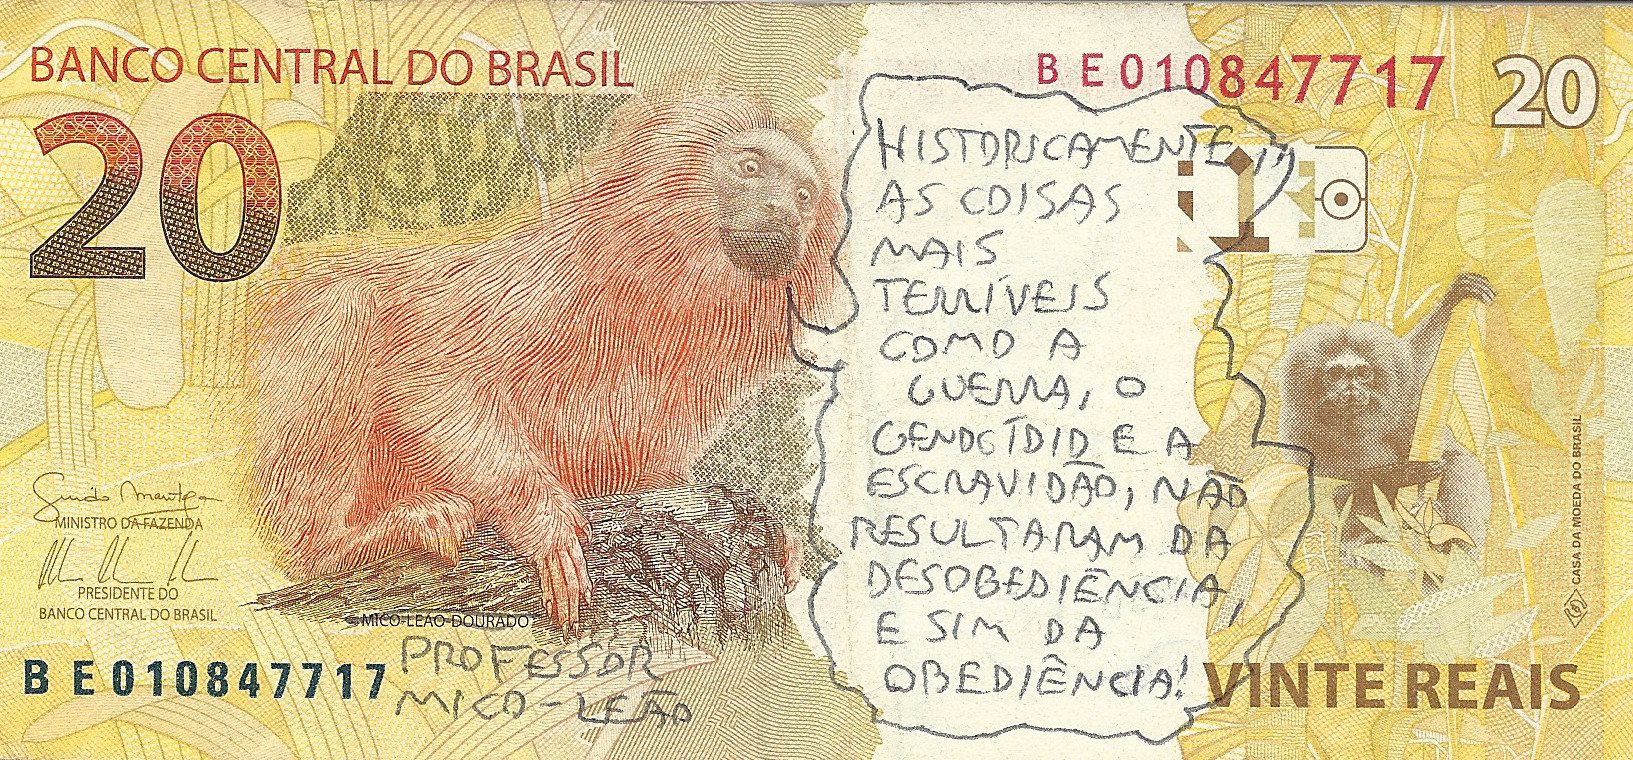 BANCO CENTRAL DO BRASIL
BE010847717
20
20
HISTORICAMENTE,
AS COISAS
MAIS
TERRÍVEIS
COMO A
GUERRA, O
GENOCÍDIO E A
ESCRAVIDÃO, NÃO
RESULTARAM DA
DESOBEDIÊNCIA,
E SIM DA
OBEDIÊNCIA!
MINISTRO DA FAZENDA
PRESIDENTE DO
BANCO CENTRAL DO BRASIL
MICO-LEÃO-DOURADO
PROFESSOR
MICO-LEÃO
BE010847717
VINTE REAIS
CASA DA MOEDA DO BRASIL